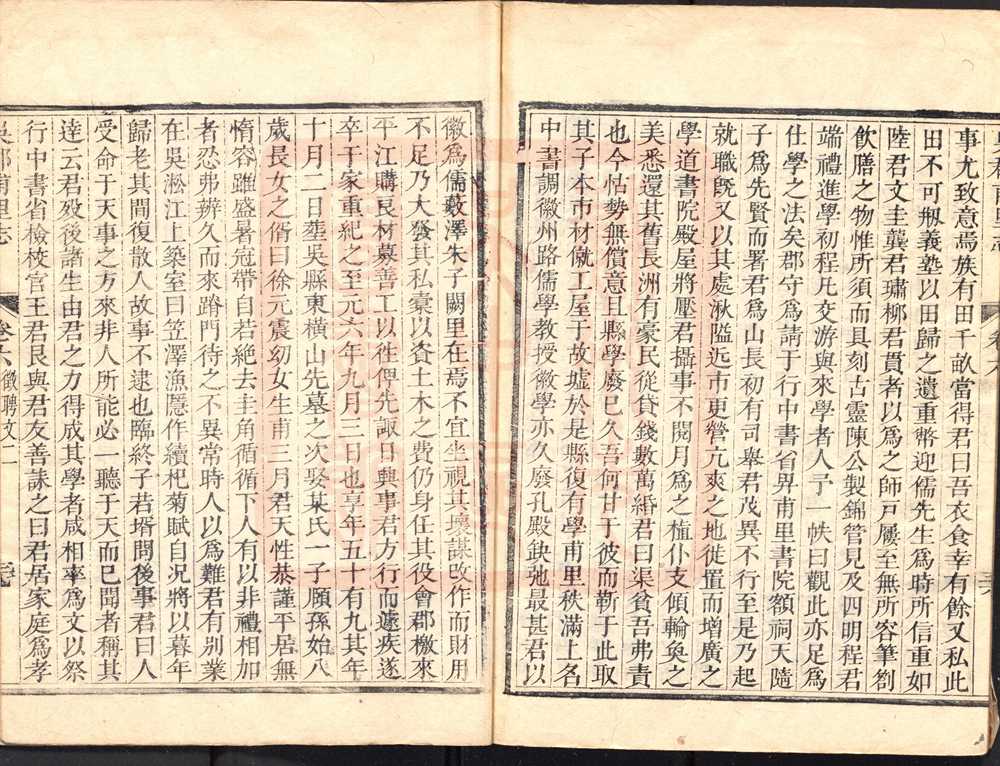 事尤致意焉族有田千畝當得君曰吾衣食幸有餘又私此
田不可刱義塾以田歸之遺重幣迎儒先生爲時所信重如
陸君文圭龔君璛柳君貫者以爲之師戸屨至無所容筆劄
飲膳之物惟所須而具刻古靈陳公製錦管見及四明程君
端禮進學初程凡交游與來學者人予一帙曰觀此亦足爲
仕學之法矣郡守爲請于行中書省畀甫里書院額祠天隨
子爲先賢而署君爲山長初有司舉君茂異不行至是乃起
就職旣又以其處湫隘近市更營亢爽之地徙置而增廣之
學道書院殿屋將壓君攝事不閱月爲之植仆支傾輪奐之
美悉還其舊長洲有豪民從貸錢數萬緡君曰渠貧吾弗責
也今怙勢無償意且縣學廢已久吾何甘于彼而靳于此取
其子本市材僦工屋于故墟於是縣復有學甫里秩滿上名
中書調徽州路儒學教授徽學亦久廢孔殿缺弛最甚君以
徽爲儒藪澤朱子闕里在焉不宜坐視其壞謀改作而財用
不足乃大發其私橐以資土木之費仍身任其役會郡檄來
平江購良材募善工以徃俾先諏日興事君方行而遽疾遂
卒于家重紀之至元六年九月三日也享年五十有九其年
十月二日塟吳縣東橫山先墓之次娶某氏一子願孫始八
歲長女之偦曰徐元震幼女生甫三月君天性恭謹平居無
惰容雖盛暑冠帶自若絶去圭角循循下人有以非禮相加
者忍弗辨久而來踏門待之不異常時人以爲難君有别業
在吳淞江上築室曰笠澤漁隱作續杞菊賦自况將以暮年
歸老其間復散人故事不逮也臨終子若壻問後事君曰人
受命于天事之方來非人所能必一聽于天而已聞者稱其
達云君歿後諸生由君之力得成其學者咸相率爲文以祭
行中書省檢校官王君艮與君友善誄之曰君居家庭爲孝
吳郡甫里志 卷六 徵聘文二